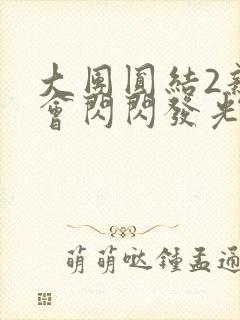 大團圓結2
會閃閃發光
萌萌哒鍾孟通